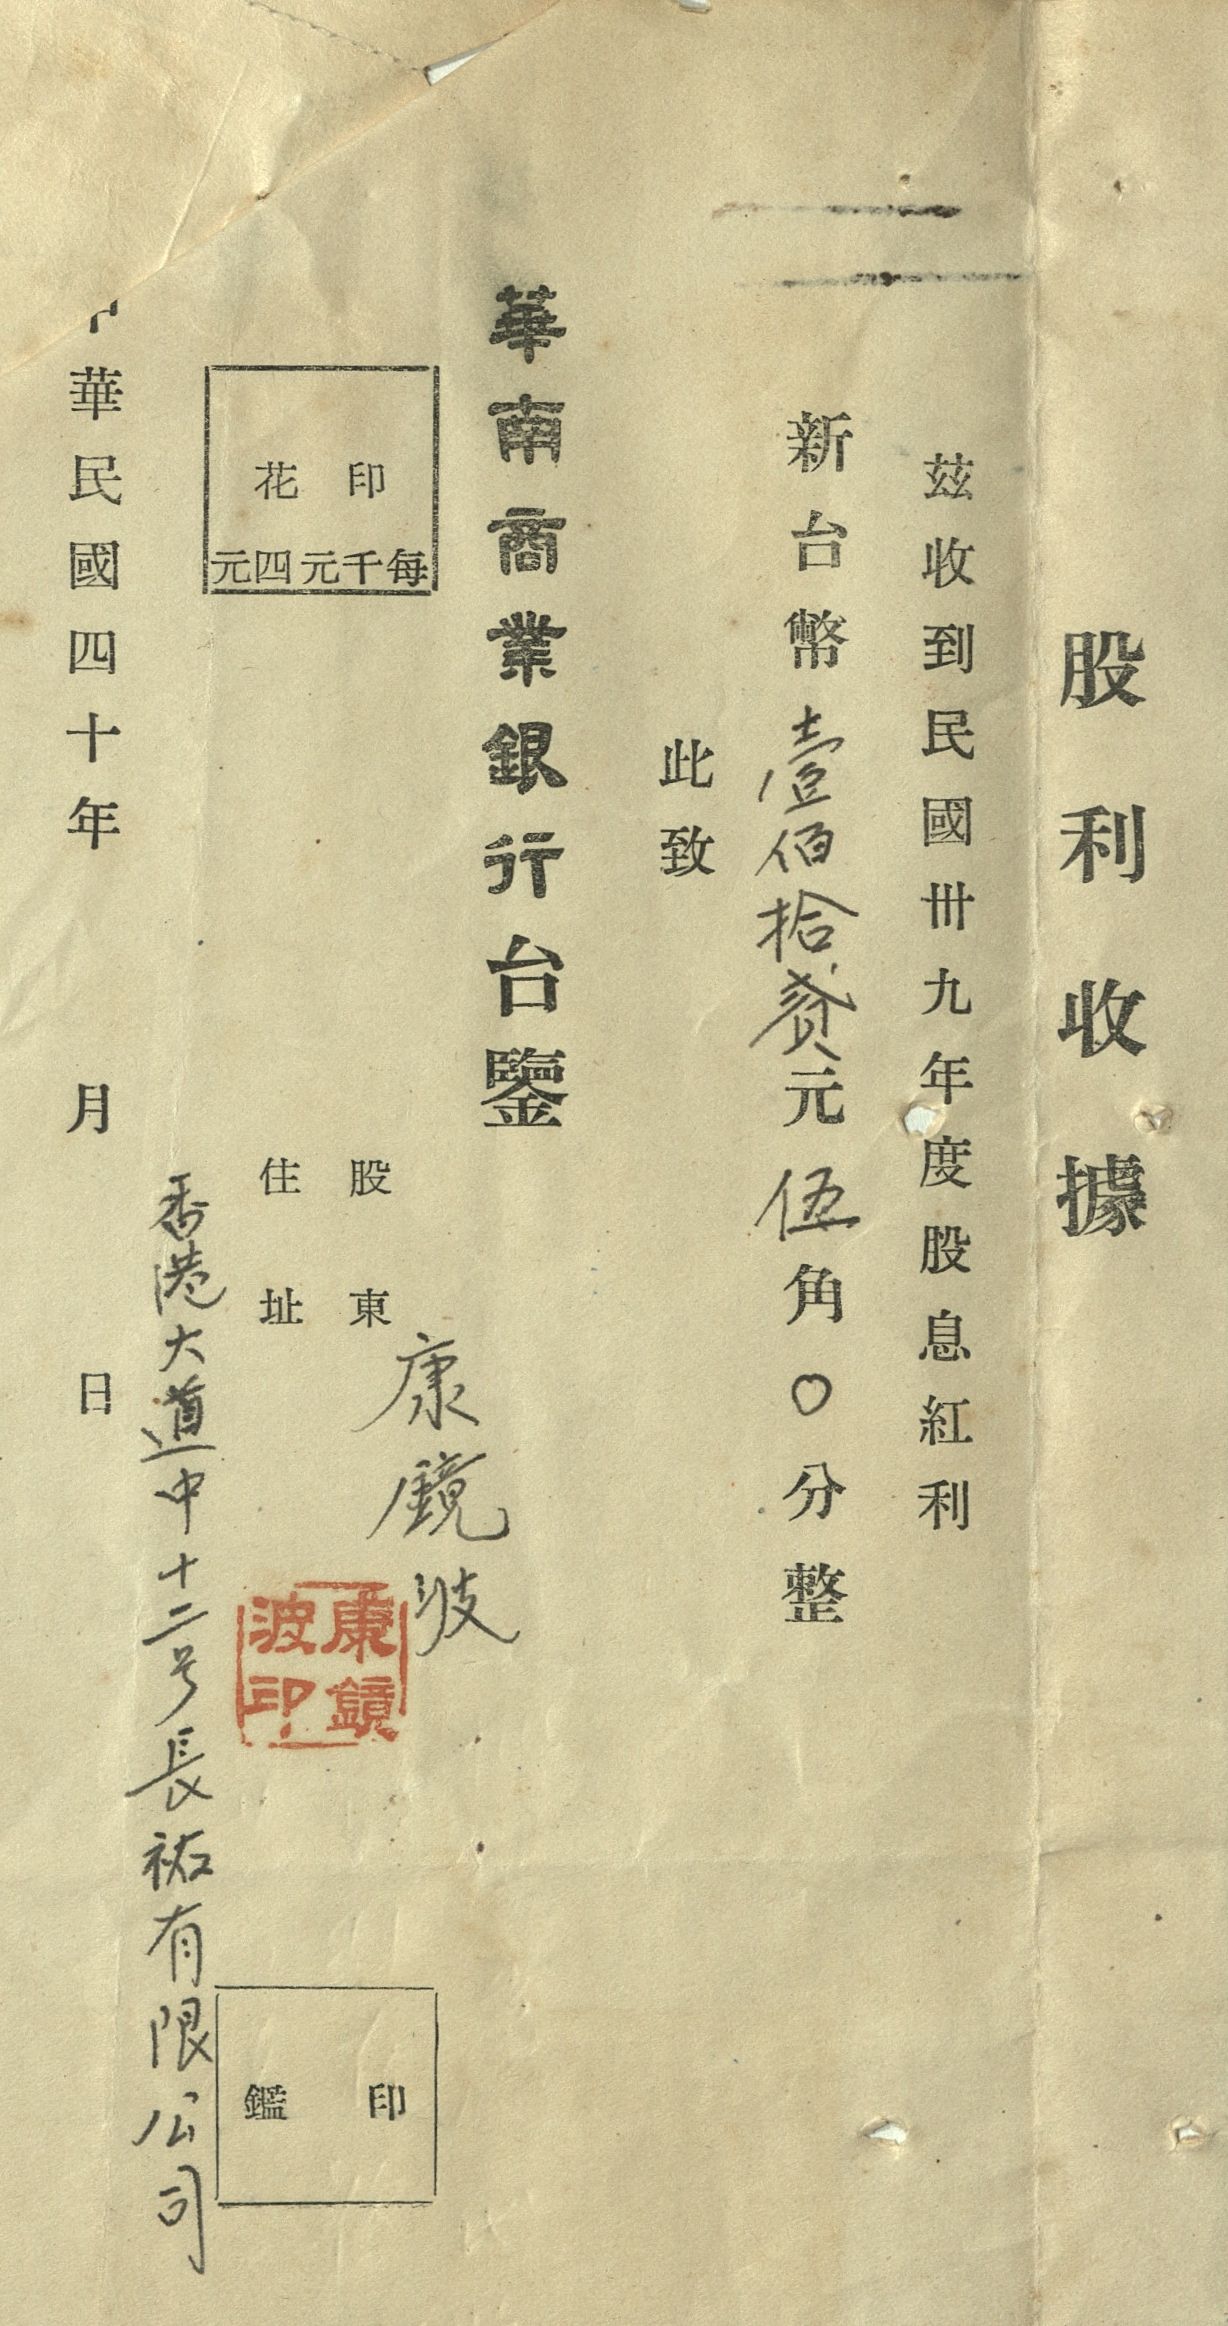 股利收據
茲收到民國卅九年度股息紅利
新台幣壹佰拾貳元伍角〇分整
此致
華南商業銀行台鑒
股東 康鏡波
康鏡波印
住址 香港大道中十二号長祐有限公司
印花
每千元四元
印鑑
中華民國四十年 月 日